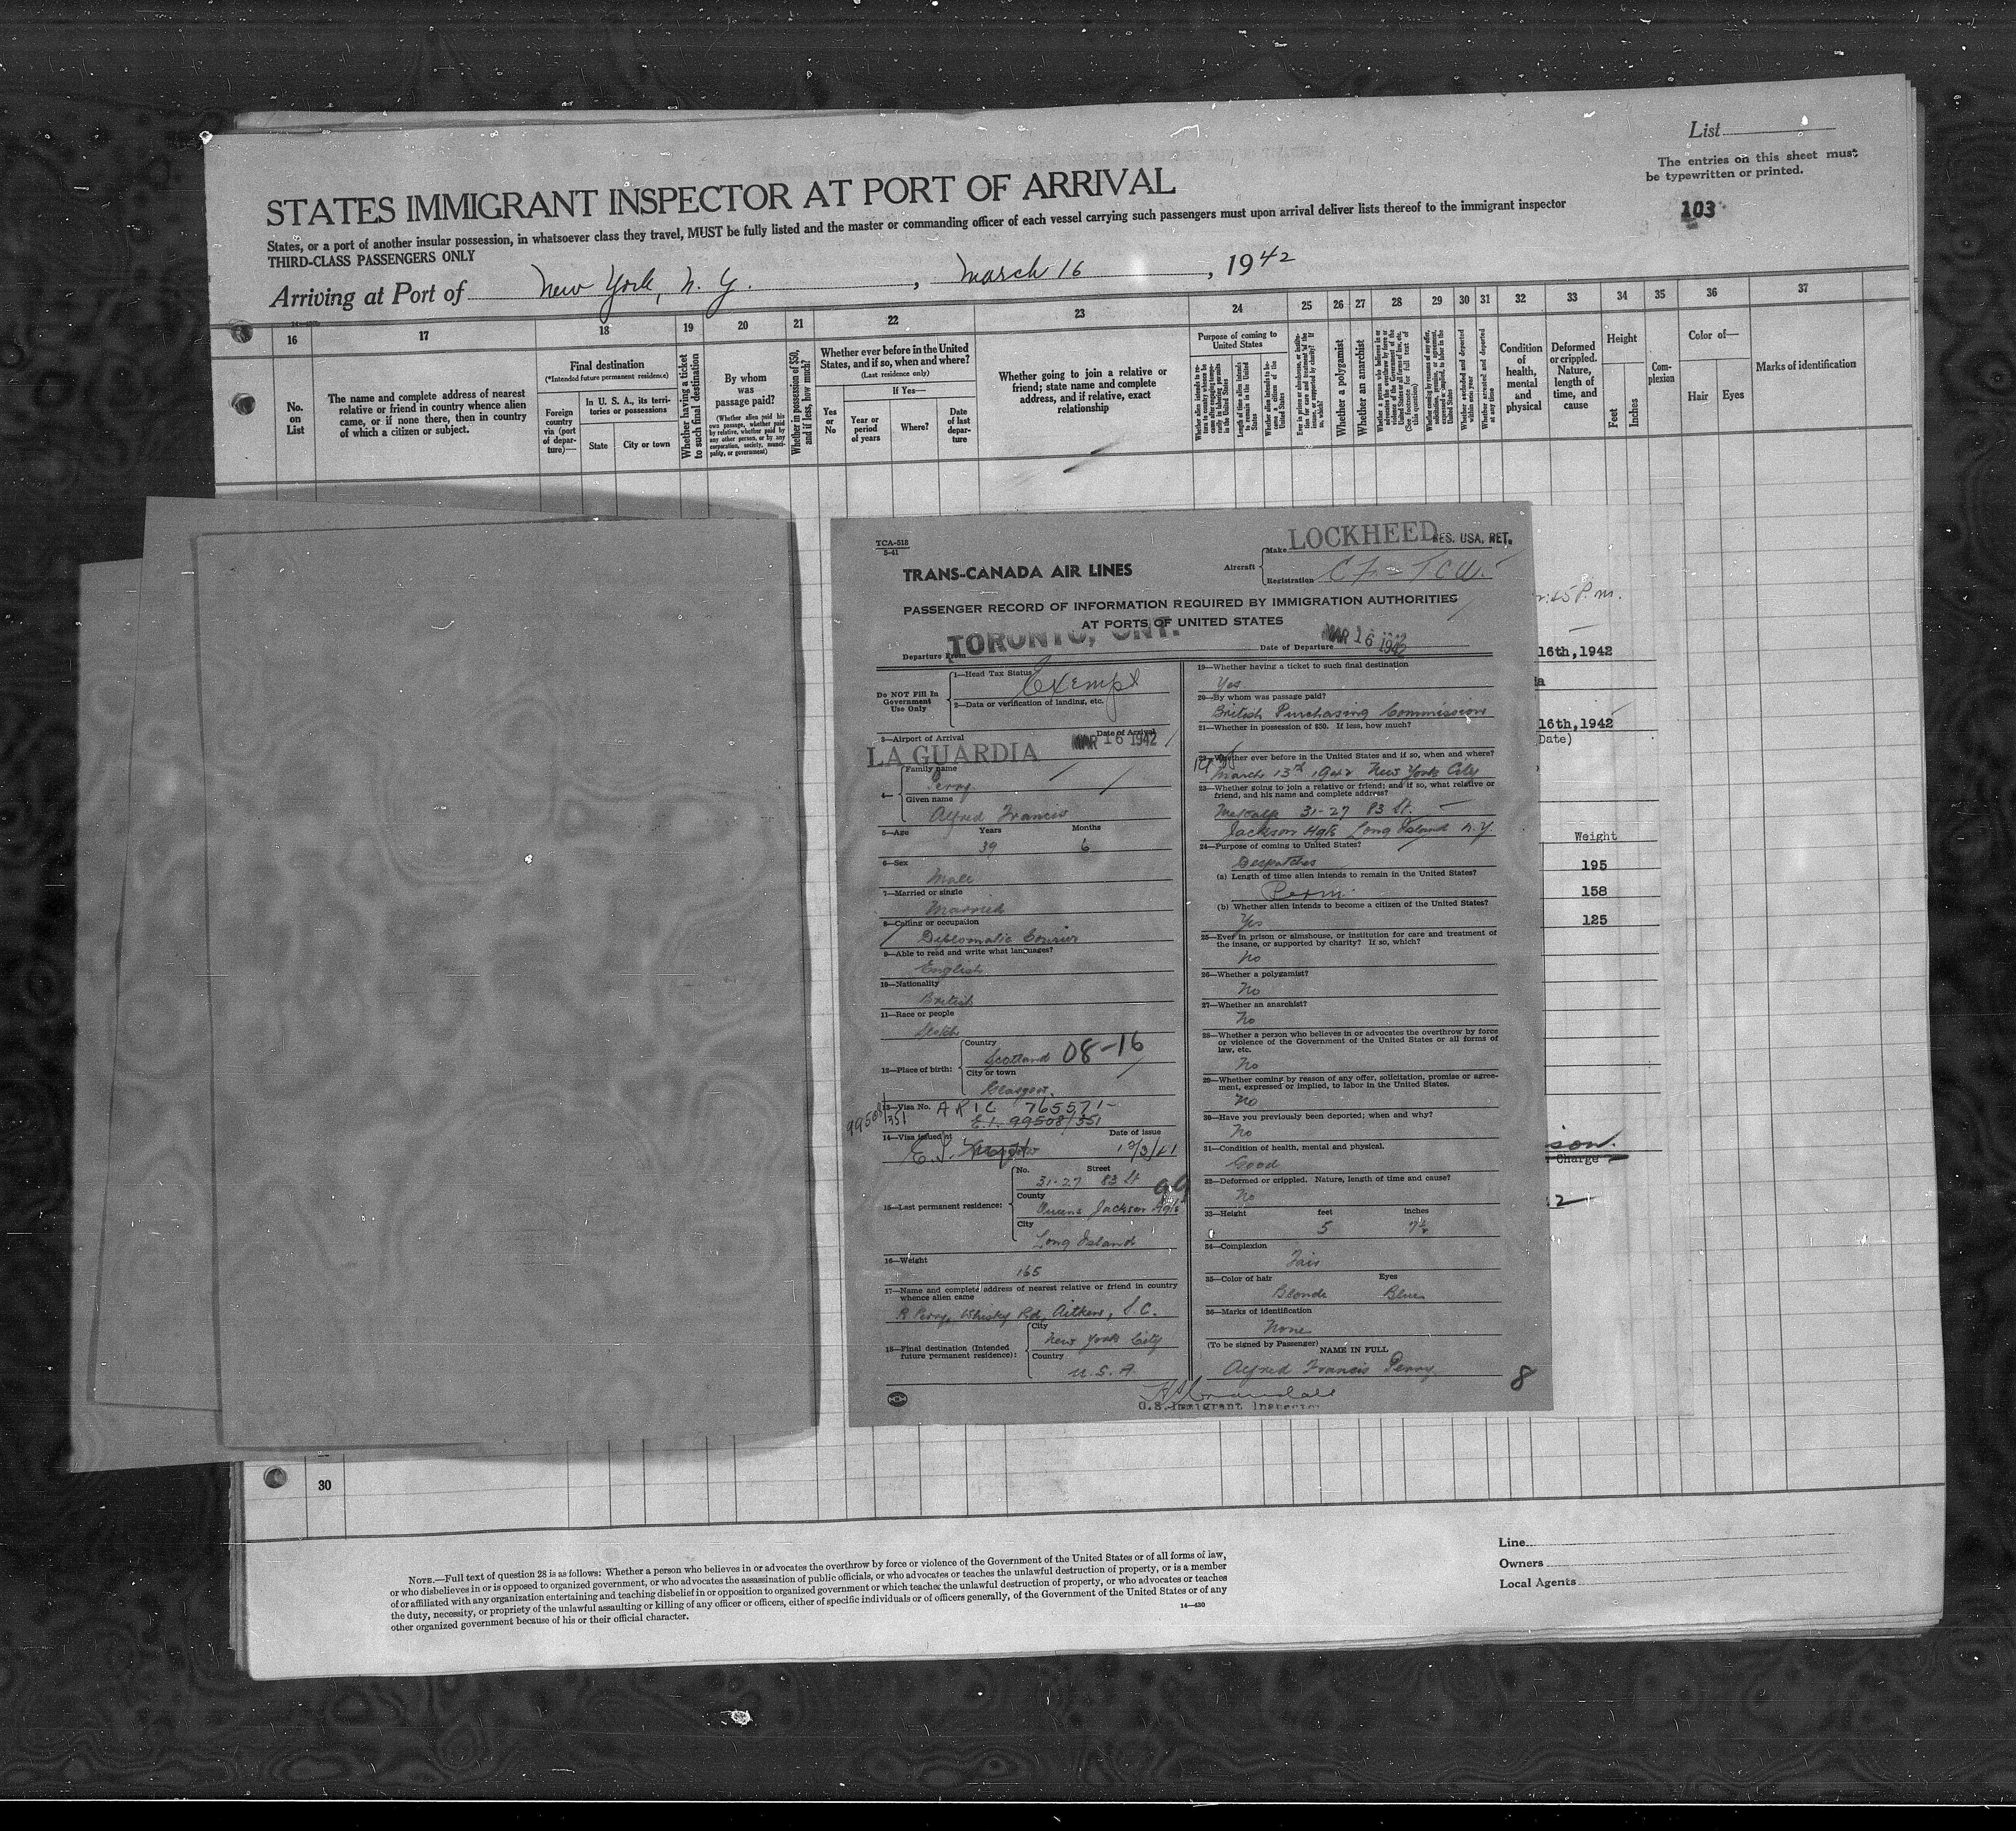 List
The entries on this sheet must
be typewritten or printed.
103
STATES IMMIGRANT INSPECTOR AT PORT OF ARRIVAL
States, or a port of another insular possession, in whatsoever class they travel, MUST be fully listed and the master or commanding officer of each vessel carrying such passengers must upon arrival deliver lists thereof to the immigrant inspector
THIRD-CLASS PASSENGERS ONLY
Arriving at Port of New York, N. Y. , March 16 , 1942
16 17 18 19 20 21 22 23 24 25 26 27 28 29 30 31 32 33 34 35 36 37
No. on List
The name and complete address of nearest
relative or friend in country whence alien
came, or if none there, then in country
of which a citizen or subject.
Final destination
(*Intended future permanent residence)
Foreign country via (port of departure)—
In U. S. A., its territories or possessions
State
City or town
Whether having a ticket to such final destination
By whom was passage paid?
(Whether alien paid his own passage, whether paid by relative, whether paid by any other person, or by any corporation, society, municipality, or government)
Whether in possession of $50, and if less, how much?
Whether ever before in the United
States, and if so, when and where?
(Last residence only)
If Yes—
Yes or No
Year or period of years
Where?
Date of last departure
Whether going to join a relative or
friend; state name and complete
address, and if relative, exact
relationship
Purpose of coming to United States
Length of time alien intends to remain in the United States
Whether alien intends to become a citizen of the United States
Whether a polygamist
Whether an anarchist
Condition of health, mental and physical
Deformed or crippled. Nature, length of time, and cause
Height
Feet
Inches
Complexion
Color of—
Hair
Eyes
Marks of identification
TCA-518
5-41
TRANS-CANADA AIR LINES
Aircraft
Make LOCKHEED
RES. USA, RET.
Registration CF-TCW.
PASSENGER RECORD OF INFORMATION REQUIRED BY IMMIGRATION AUTHORITIES
AT PORTS OF UNITED STATES
Departure From TORONTO, ONT.
Date of Departure MAR 16 1942
Do NOT Fill In
Government
Use Only
1—Head Tax Status Exempt
2—Data or verification of landing, etc.
3—Airport of Arrival
Date of Arrival
LA GUARDIA MAR 16 1942
4— Family name
Perry
Given name
Alfred Francis
5—Age Years Months
39 6
6—Sex
Male
7—Married or single
Married
8—Calling or occupation
Diplomatic Courier
9—Able to read and write what languages?
English
10—Nationality
British
11—Race or people
Scotch
12—Place of birth:
Country
Scotland 08-16
City or town
Glasgow.
13—Visa No. ARIC 765571-
E.I. 99508/351
99508/351
14—Visa issued at
Date of issue
E.I.
15—Last permanent residence:
No. Street
31-27 83 St
County
Queens Jackson Hgts
City
Long Island
16—Weight
165
17—Name and complete address of nearest relative or friend in country
whence alien came
R Perry, Whisky Rd, Aitken, S.C.
18—Final destination (Intended
future permanent residence):
City
New York City
Country
U.S.A.
19—Whether having a ticket to such final destination
Yes
20—By whom was passage paid?
British Purchasing Commission
21—Whether in possession of $50. If less, how much?
22—Whether ever before in the United States and if so, when and where?
March 13th 1942 New York City
23—Whether going to join a relative or friend; and if so, what relative or
friend, and his name and complete address?
Metcalfe 31-27 83 St.
Jackson Hgts Long Island N.Y.
24—Purpose of coming to United States?
Despatches
(a) Length of time alien intends to remain in the United States?
Perm.
(b) Whether alien intends to become a citizen of the United States?
Yes
25—Ever in prison or almshouse, or institution for care and treatment of
the insane, or supported by charity? If so, which?
No
26—Whether a polygamist?
No
27—Whether an anarchist?
No
28—Whether a person who believes in or advocates the overthrow by force
or violence of the Government of the United States or all forms of
law, etc.
No
29—Whether coming by reason of any offer, solicitation, promise or agree-
ment, expressed or implied, to labor in the United States.
No
30—Have you previously been deported; when and why?
No
31—Condition of health, mental and physical.
Good
32—Deformed or crippled. Nature, length of time and cause?
No
33—Height feet inches
5 7½
34—Complexion
Fair
35—Color of hair Eyes
Blonde Blue
36—Marks of identification
None
(To be signed by Passenger) NAME IN FULL
Alfred Francis Perry
8
U.S. Immigrant Inspector
P.m.
16th,1942
16th,1942
Date)
Weight
195
158
125
son.
Charge
30
NOTE.—Full text of question 28 is as follows: Whether a person who believes in or advocates the overthrow by force or violence of the Government of the United States or of all forms of law,
or who disbelieves in or is opposed to organized government, or who advocates the assassination of public officials, or who advocates or teaches the unlawful destruction of property, or is a member
of or affiliated with any organization entertaining and teaching disbelief in or opposition to organized government or which teaches the unlawful destruction of property, or who advocates or teaches
the duty, necessity, or propriety of the unlawful assaulting or killing of any officer or officers, either of specific individuals or of officers generally, of the Government of the United States or of any
other organized government because of his or their official character.
14—430
Line
Owners
Local Agents